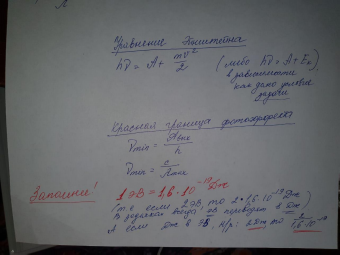 Уравнение Эйнштейна
hν = A + mv²/2 (либо hν = A + Eк)
в зависимости
как дано условие
задачи
Красная граница фотоэффекта
νmin = Aвых/h
νmin = c/λmax
Запомни! 1 эВ = 1,6·10⁻¹⁹ Дж
(т.е если 2 эВ, то 2·1,6·10⁻¹⁹ Дж
В задачах тогда эВ переводят в Дж)
А если Дж в эВ, н/р: 2 Дж то 2/1,6·10⁻¹⁹